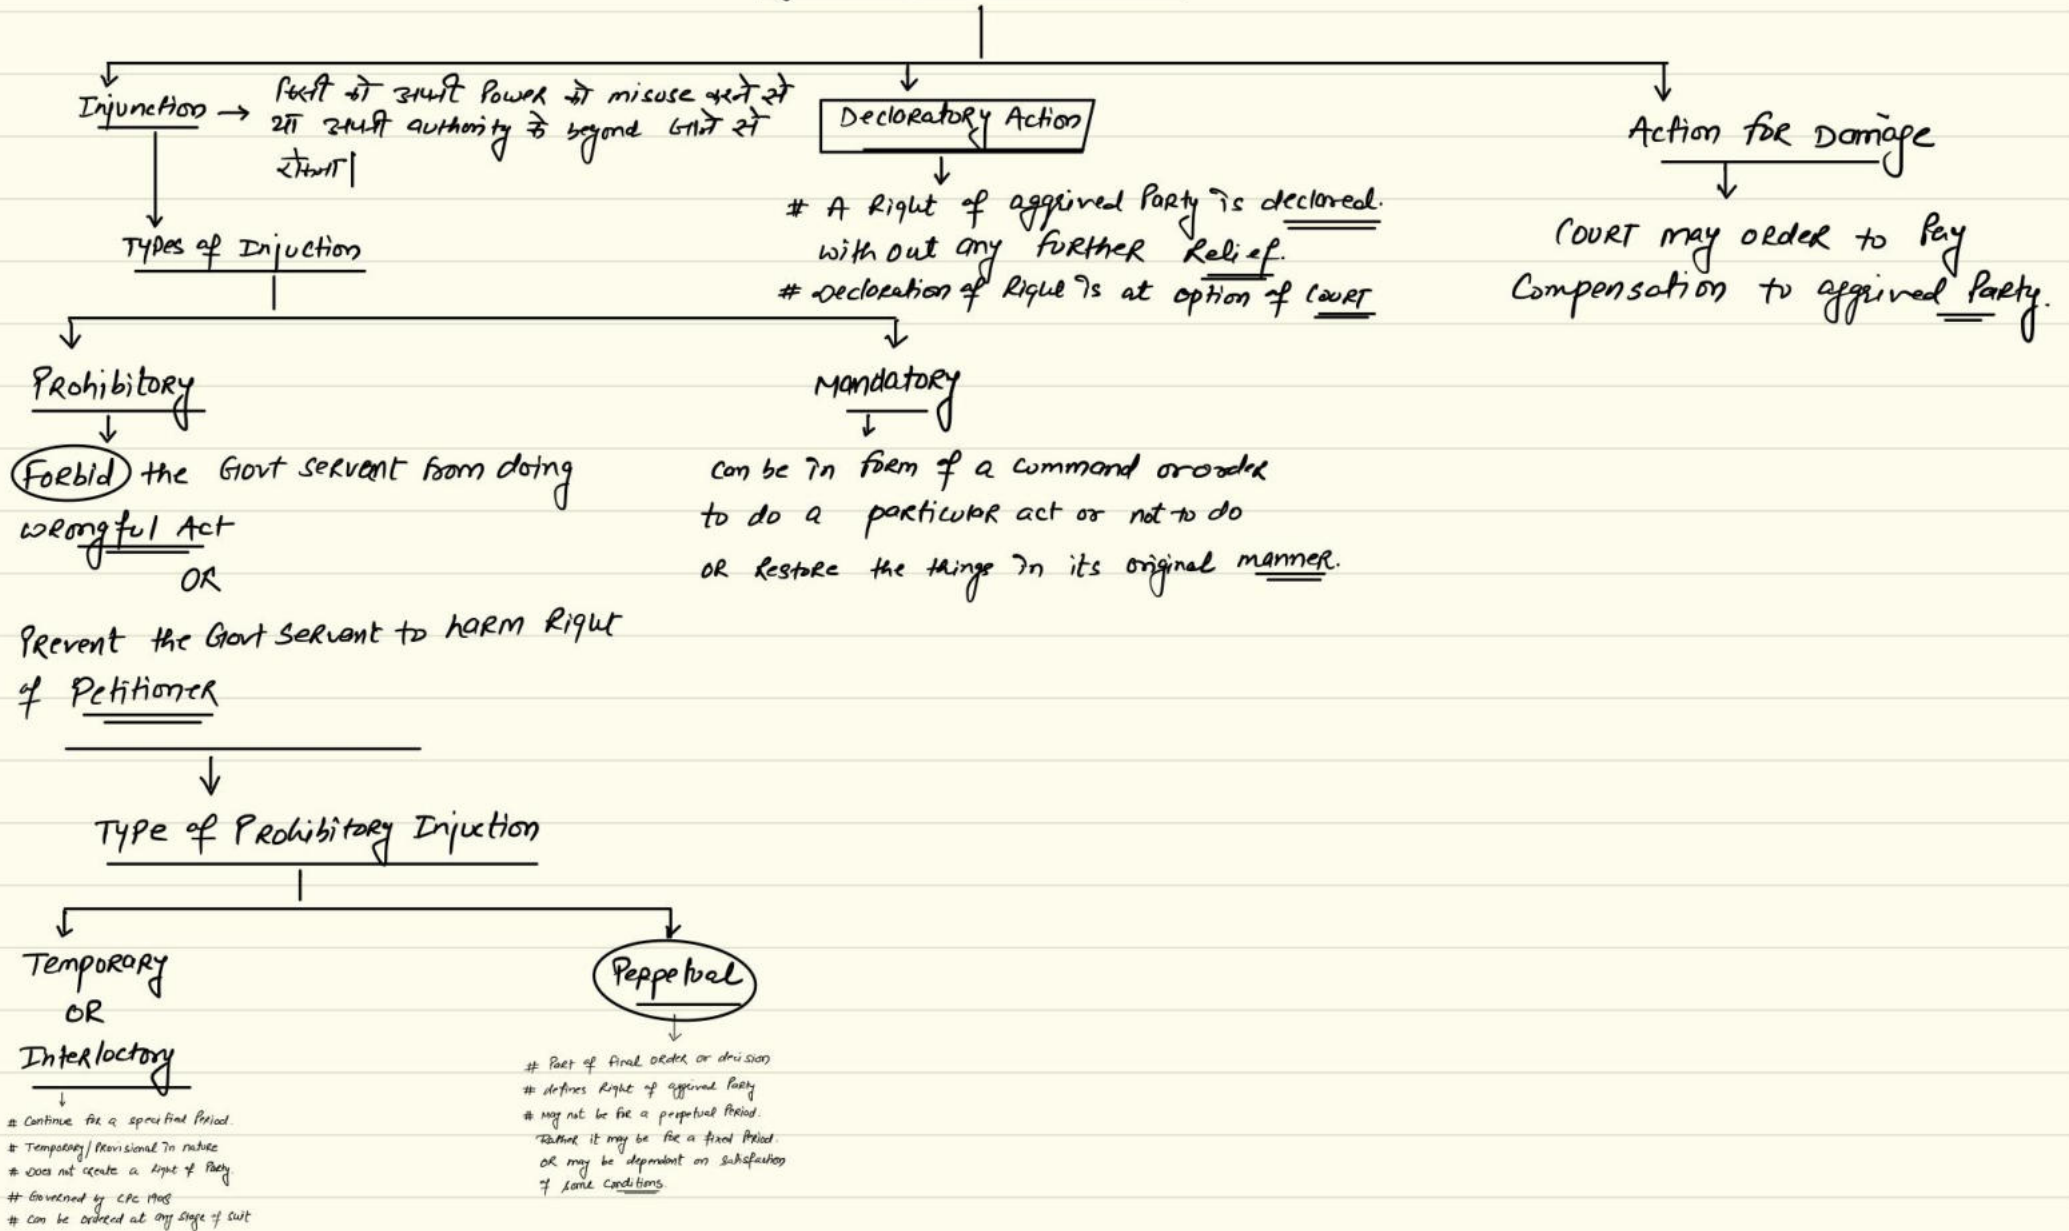 Injunction → किसी को अपनी Power को misuse करने से
या अपनी authority के beyond जाने से
रोकना|
Types of Injuction
Prohibitory
Forbid the Govt servent from doing
wrongful Act
OR
Prevent the Govt Servent to harm Right
of Petitioner
Type of Prohibitory Injuction
Temporary
OR
Interloctory
# Continue for a specified Period.
# Temporary/Provisional in nature
# Does not create a Right of Party.
# Governed by CPC 1908
# Can be ordered at any stage of suit
Perpetual
# Part of final order or decision
# defines Right of aggrived Party
# May not be for a perpetual Period.
Rather it may be for a fixed Period.
OR may be dependant on satisfaction
of some Conditions.
Mandatory
Can be in form of a command or order
to do a particular act or not to do
OR Restore the things in its original manner.
Declaratory Action
# A Right of aggrived Party is declared.
with out any further Relief.
# Declaration of Right is at option of Court
Action for Damage
Court may order to Pay
Compensation to aggrived Party.